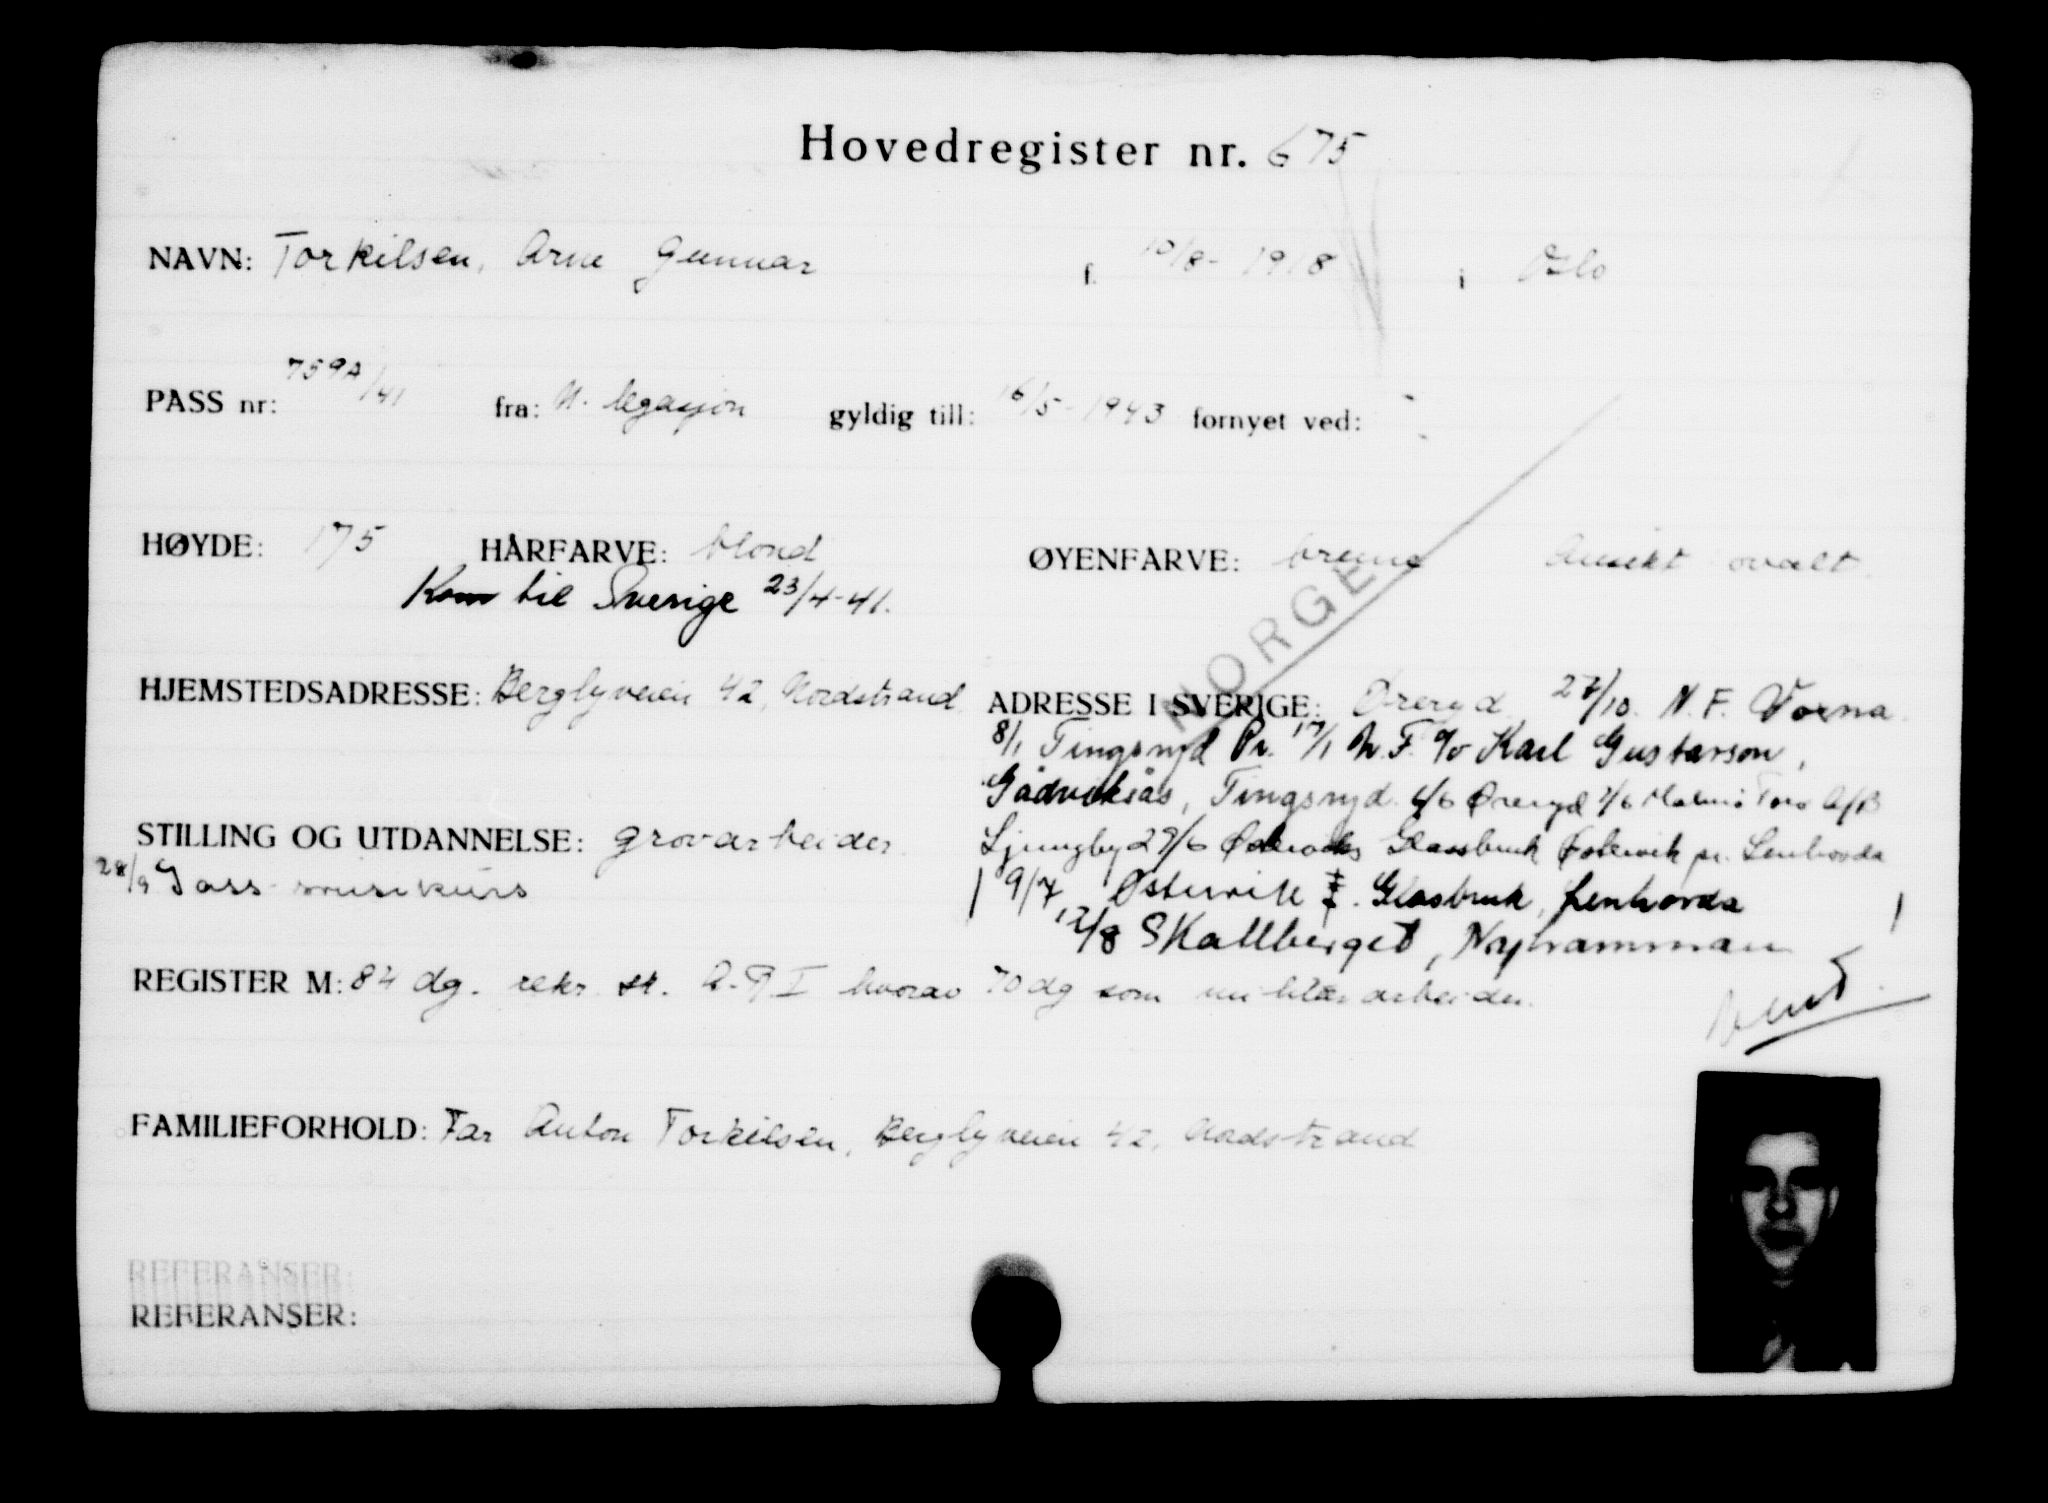 Hovedregister nr. 675
NAVN: Torkilsen, Arne Gunnar f. 10/8- 1918 i Oslo
PASS nr: 759A/41 fra: N. legasjon gyldig till: 16/5-1943 fornyet ved:
HØYDE: 175 HÅRFARVE: blond ØYENFARVE: brune Ansikt ovalt.
Kom til Sverige 23/4-41.
NORGE
HJEMSTEDSADRESSE: Berglyveien 42, Nordstrand ADRESSE I SVERIGE: Øreryd 27/10. N. F. Värna
8/1 Tingsryd Pr. 17/1 N.F. c/o Karl Gustavson,
Gådviksås, Tingsryd. 6/6 Øreryd 7/6 Malmö Torv A/B
STILLING OG UTDANNELSE: grovarbeider. Ljungby 27/6 Glassbruk pr. Lenhovda
28/9 Jass musikkurs 9/7 Østervik Glasbruk, Lenhovda
12/8 Skallberget, Nyhamman
REGISTER M: 84 dg. rekr. st. hvorav 70 dg som militærarbeider.
FAMILIEFORHOLD: Far Anton Torkilsen, Berglyveien 42, Nordstrand
REFERANSER:
REFERANSER: